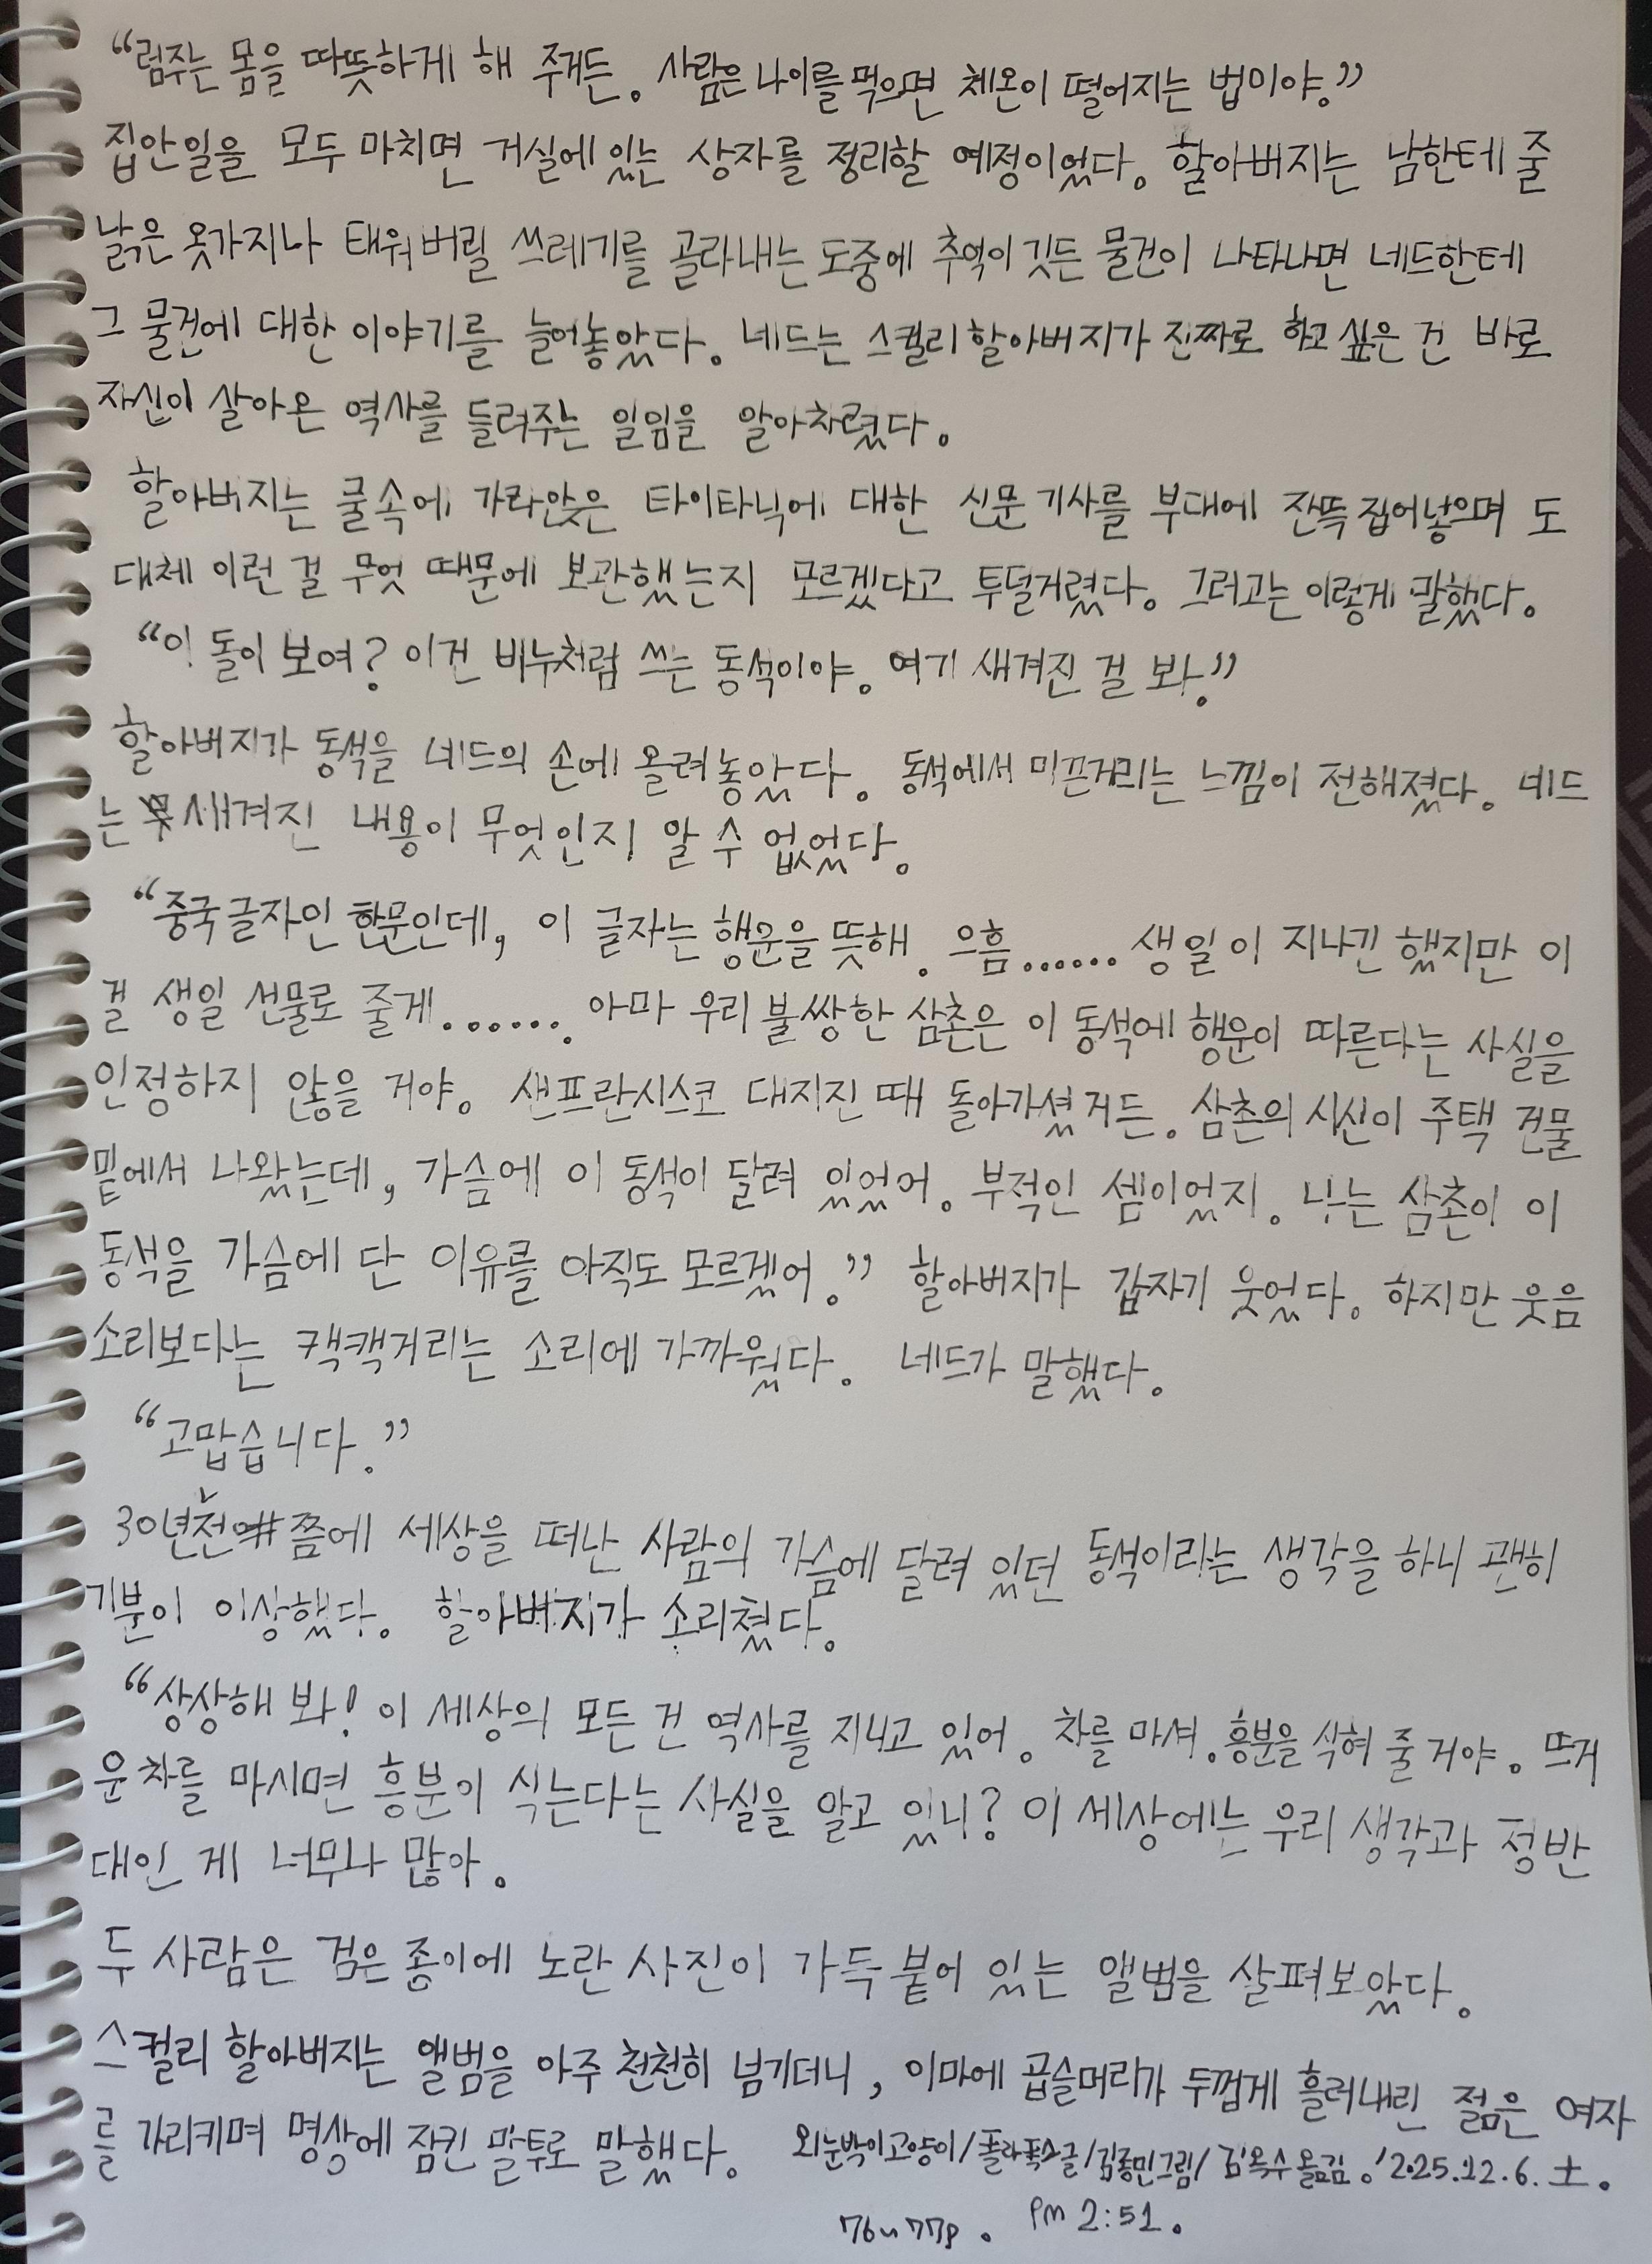 “럼주는 몸을 따뜻하게 해 주거든. 사람은 나이를 먹으면 체온이 떨어지는 법이야.”
집안일을 모두 마치면 거실에 있는 상자를 정리할 예정이었다. 할아버지는 남한테 줄
낡은 옷가지나 태워버릴 쓰레기를 골라내는 도중에 추억이 깃든 물건이 나타나면 네드한테
그 물건에 대한 이야기를 늘어놓았다. 네드는 스컬리 할아버지가 진짜로 하고 싶은 건 바로
자신이 살아온 역사를 들려주는 일임을 알아차렸다.
할아버지는 물속에 가라앉은 타이타닉에 대한 신문 기사를 부대에 잔뜩 집어넣으며 도
대체 이런 걸 무엇 때문에 보관했는지 모르겠다고 투덜거렸다. 그러고는 이렇게 말했다.
“이 돌이 보여? 이건 비누처럼 쓰는 동석이야. 여기 새겨진 걸 봐.”
할아버지가 동석을 네드의 손에 올려놓았다. 동석에서 미끈거리는 느낌이 전해졌다. 네드
는 새겨진 내용이 무엇인지 알 수 없었다.
“중국글자인 한문인데, 이 글자는 행운을 뜻해. 으흠...... 생일이 지나긴 했지만 이
걸 생일 선물로 줄게....... 아마 우리 불쌍한 삼촌은 이 동석에 행운이 따른다는 사실을
인정하지 않을 거야. 샌프란시스코 대지진 때 돌아가셨거든. 삼촌의 시신이 주택 건물
밑에서 나왔는데, 가슴에 이 동석이 달려 있었어. 부적인 셈이었지. 나는 삼촌이 이
동석을 가슴에 단 이유를 아직도 모르겠어.” 할아버지가 갑자기 웃었다. 하지만 웃음
소리보다는 캑캑거리는 소리에 가까웠다. 네드가 말했다.
“고맙습니다.”
30년전쯤에 세상을 떠난 사람의 가슴에 달려 있던 동석이라는 생각을 하니 괜히
기분이 이상했다. 할아버지가 소리쳤다.
“상상해 봐! 이 세상의 모든 건 역사를 지니고 있어. 차를 마셔. 흥분을 식혀 줄 거야. 뜨거
운 차를 마시면 흥분이 식는다는 사실을 알고 있니? 이 세상에는 우리 생각과 정반
대인 게 너무나 많아.
두 사람은 검은 종이에 노란 사진이 가득 붙어 있는 앨범을 살펴보았다.
스컬리 할아버지는 앨범을 아주 천천히 넘기더니, 이마에 곱슬머리가 두껍게 흘러내린 젊은 여자
를 가리키며 명상에 잠긴 말투로 말했다. 외눈박이고양이/폴라폭스글/김종민그림/김옥수옮김.'2025.12.6.土.
76~77p. PM 2:51.